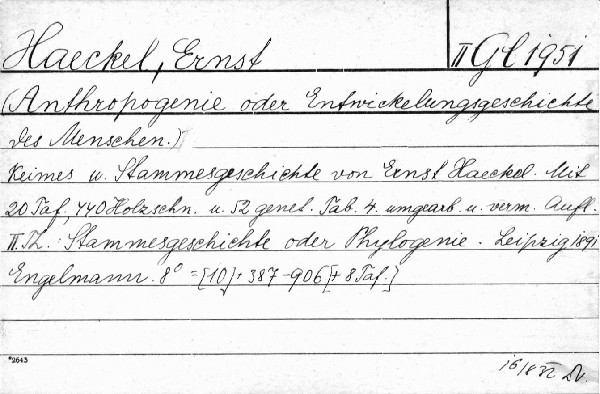 Haeckel, Ernst
II Gl 1951
(Anthropogenie oder Entwickelungsgeschichte
des Menschen.)
Keimes u. Stammesgeschichte von Ernst Haeckel. Mit
20 Taf, 440 Holzschn. u. 52 genet. Tab. 4. umgearb. u. verm. Aufl.
II. Th.: Stammesgeschichte oder Phylogenie. Leipzig 1891
Engelmann. 8° = [10] + 387-906 [+ 8 Taf.]
*2643
16/8